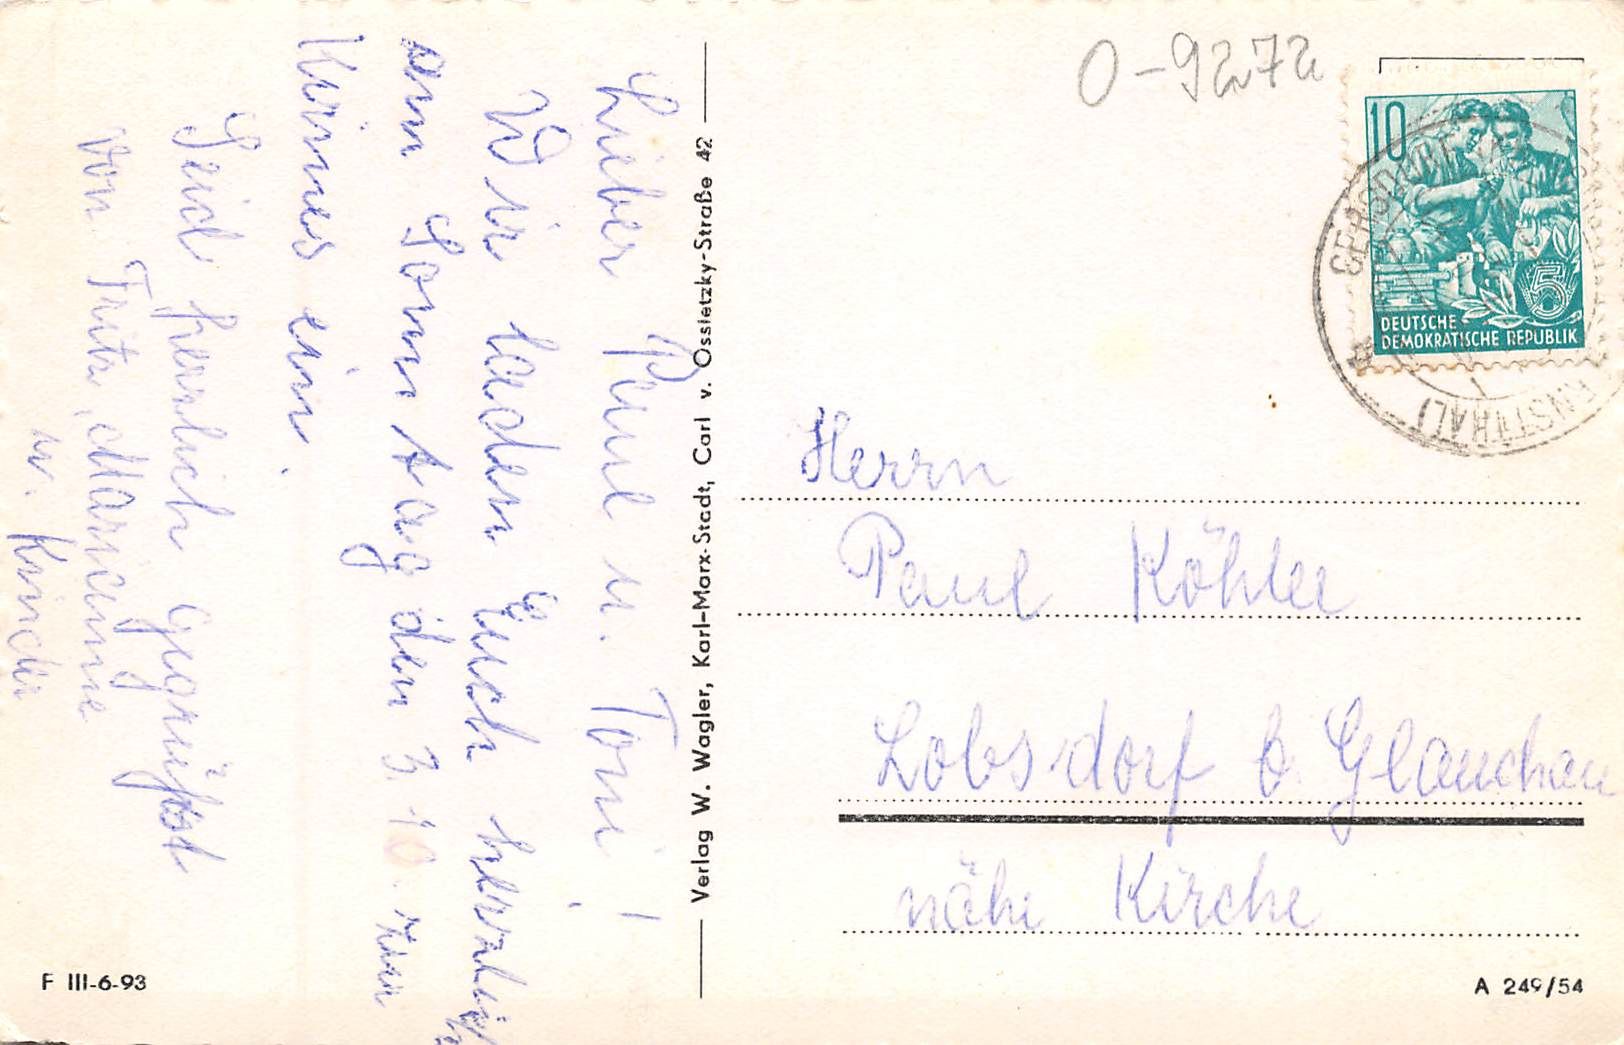 Lieber Paul u. Toni!
Wir laden Euch herzlich
am Sonntag den 3.10. zur
Kirmes ein.
Seid herzlich gegrüßt
von Fritz, Marianne
u. Kinder
Verlag W. Wagler, Karl-Marx-Stadt, Carl v. Ossietzky-Straße 42
F III-6-93
O-9272
10
5
DEUTSCHE
DEMOKRATISCHE REPUBLIK
Herrn
Paul Köhler
Lobsdorf b. Glauchau
nähe Kirche
A 249/54